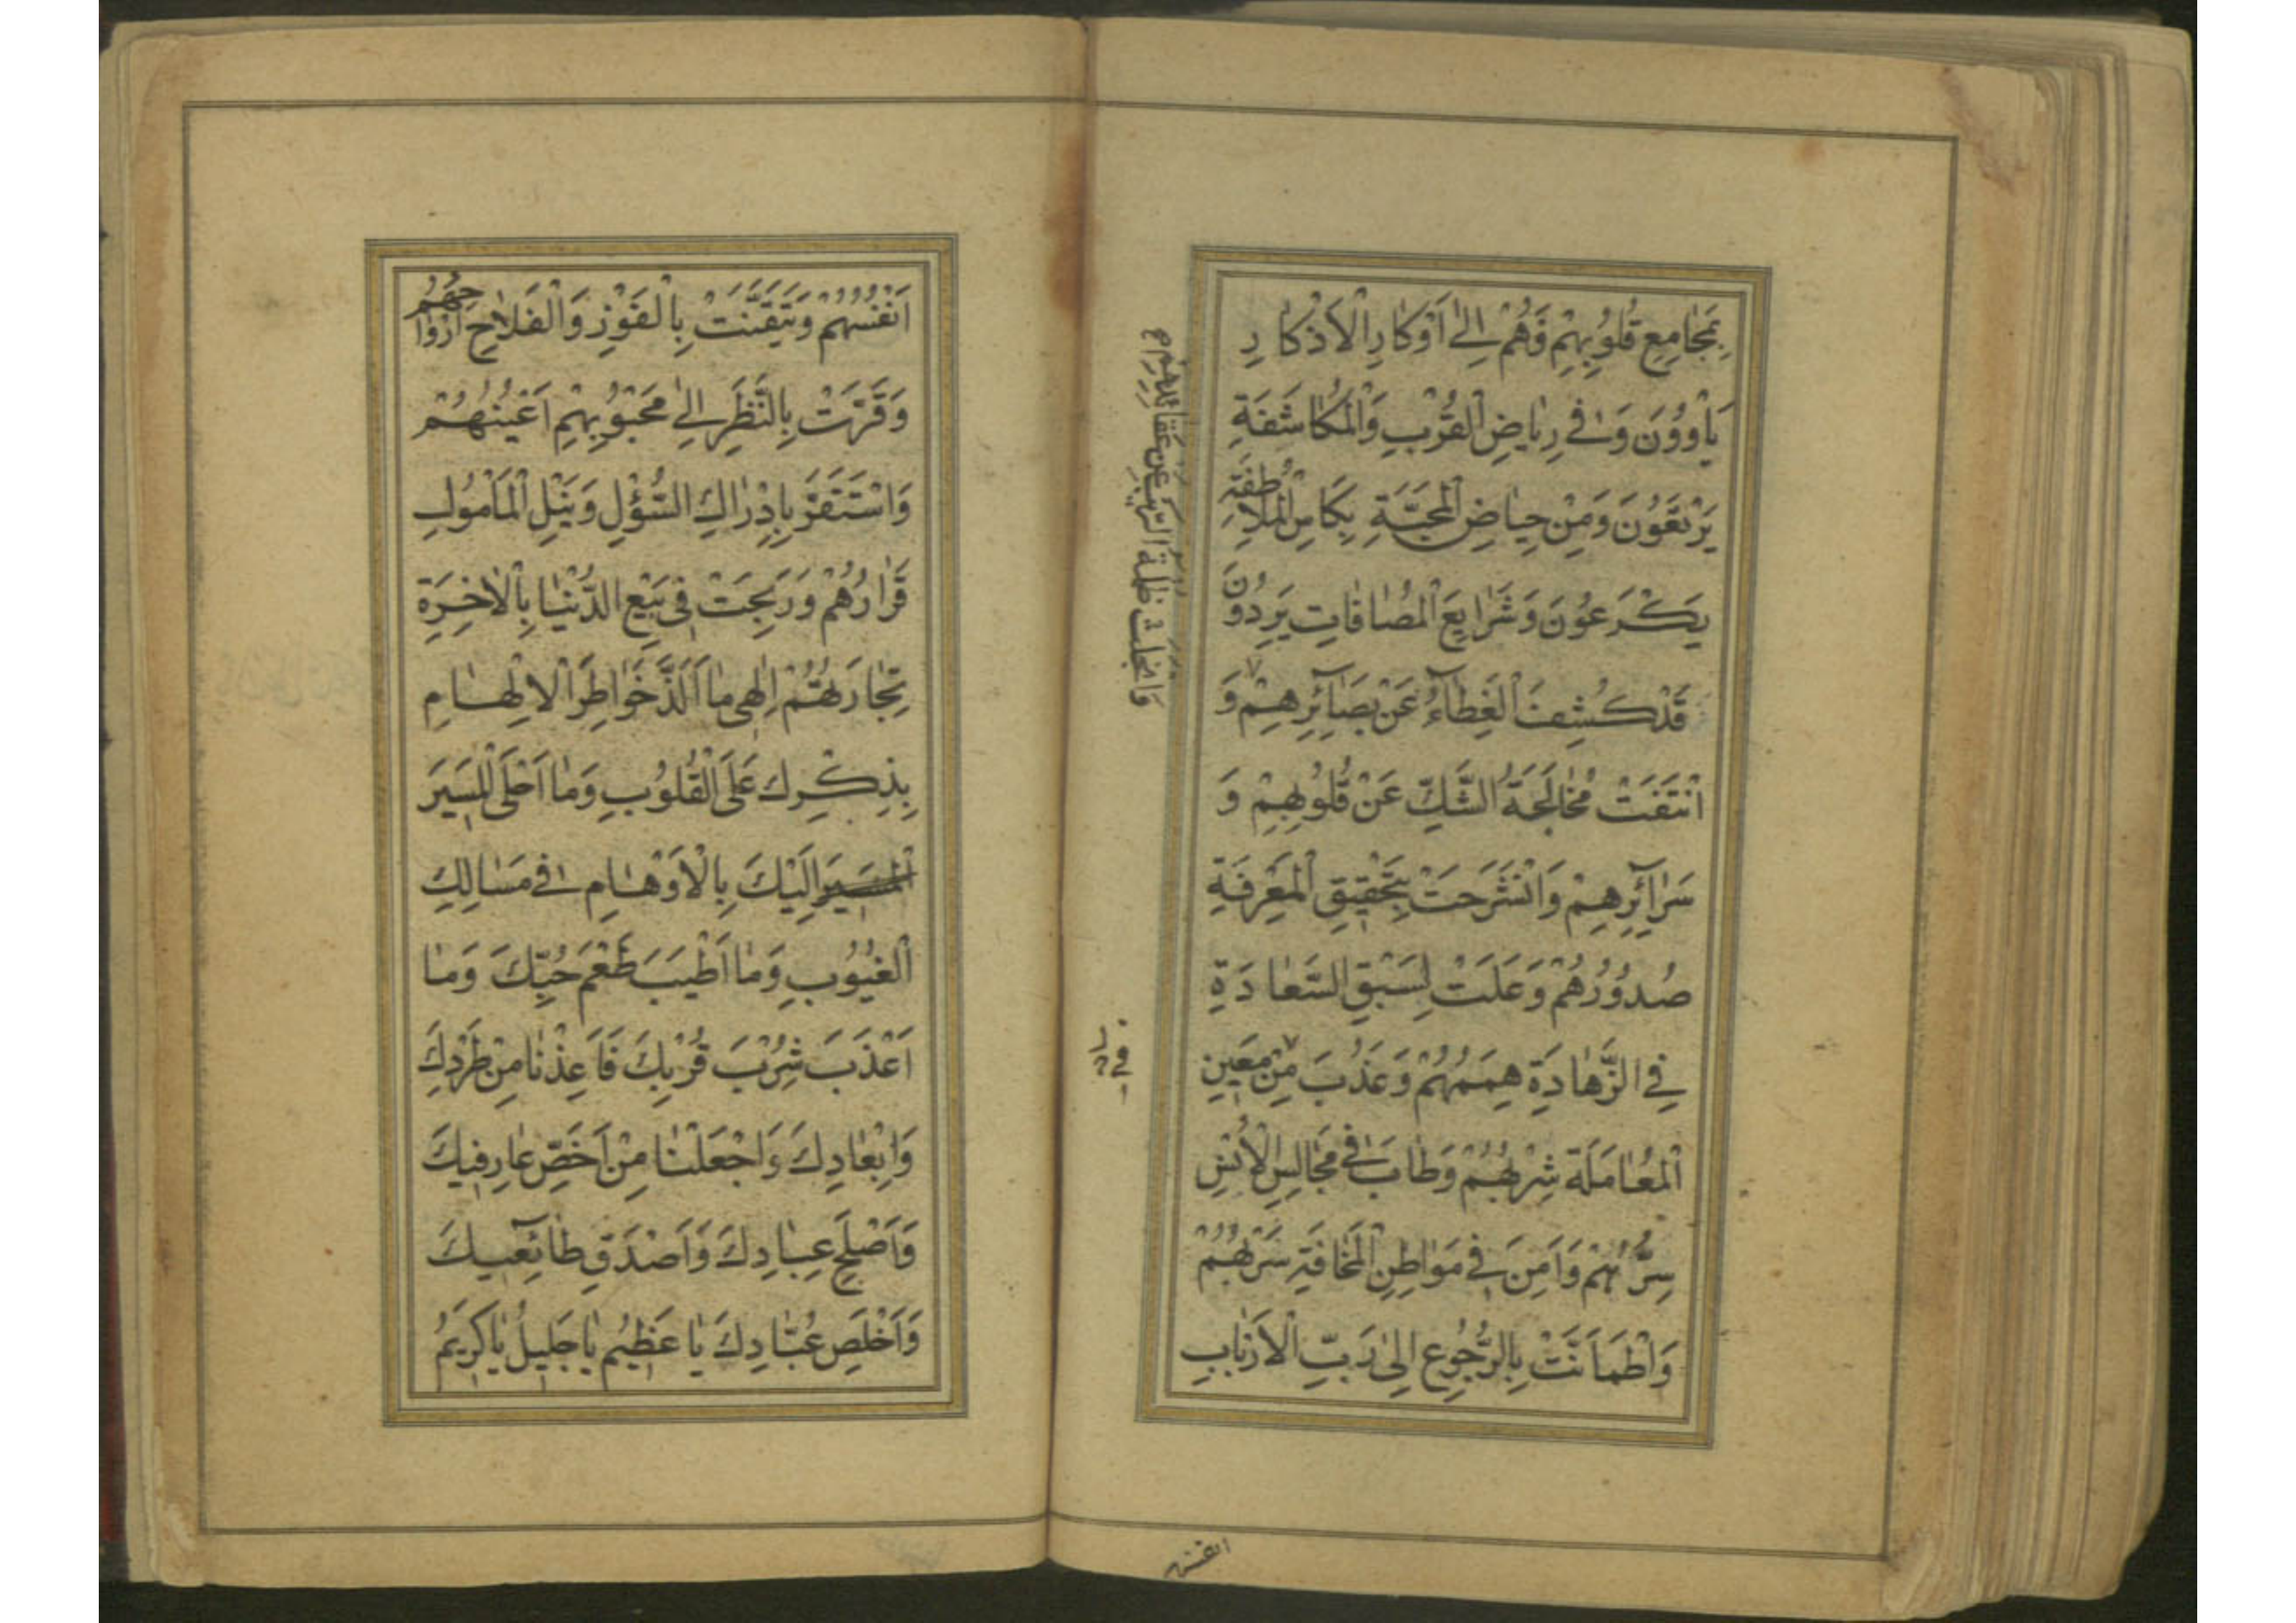 بِمَجٰامِعِ قُلُوبِهِمْ فَهُمْ اِلىٰ اَوْكٰارِ الْاَذْكٰارِ
يَأْوُونَ وَ فى رِيٰاضِ الْقُرْبِ وَالْمُكٰاشَفَةِ
يَرْتَعُونَ وَمِنْ حِيٰاضِ الْمَحَبَّةِ بِكَاْسِ الْمُلاطَفَةِ
يَكْرَعُونَ وَشَرٰايِعَ الْمُصٰافٰاتِ يَرِدُونَ
قَدْ كُشِفَ الْغِطٰاۤءُ عَنْ بَصٰاۤئِرِهِمْ وَ
انْتَفَتْ مُخٰالَجَةُ الشَّكِّ عَنْ قُلُوبِهِمْ وَ
سَرٰاۤئِرِهِمْ وَانْشَرَحَتْ بِتَحْقِيقِ الْمَعْرِفَةِ
صُدُورُهُمْ وَعَلَتْ لِسَبْقِ السَّعٰادَةِ
فِى الزَّهٰادَةِ هِمَمُهُمْ وَعَذُبَ مِنْ مَعِينِ
الْمُعٰامَلَةِ شِرْبُهُمْ وَطٰابَ فى مَجٰالِسِ الْاُنْسِ
سِرُّهُمْ وَاَمِنَ فى مَوٰاطِنِ الْمَخٰافَةِ سَرْبُهُمْ
وَاطْمَاَنَّتْ بِالرُّجُوعِ اِلىٰ رَبِّ الْاَرْبٰابِ
وَانْجَلَتْ ظُلْمَةُ الرَّيْبِ عَنْ عَقٰائِدِهِمْ
انفسهم
اَنْفُسُهُمْ وَتَيَقَّنَتْ بِالْفَوْزِ وَالْفَلاٰحِ اَرْوٰاحُهُمْ
وَقَرَّتْ بِالنَّظَرِ اِلىٰ مَحْبُوبِهِمْ اَعْيُنُهُمْ
وَاسْتَقَرَّ بِاِدْرٰاكِ السُّؤْلِ وَنَيْلِ الْمَأْمُولِ
قَرٰارُهُمْ وَرَبِحَتْ فى بَيْعِ الدُّنْيٰا بِالْاٰخِرَةِ
تِجٰارَتُهُمْ اِلٰهى مٰا اَلَذَّ خَوٰاطِرَ الْاِلْهٰامِ
بِذِكْرِكَ عَلَى الْقُلُوبِ وَمٰا اَحْلَى الْمَسيرَ
الْمَسيرَ اِلَيْكَ بِالْاَوْهٰامِ فى مَسٰالِكِ
الْغُيُوبِ وَمٰا اَطْيَبَ طَعْمَ حُبِّكَ وَمٰا
اَعْذَبَ شِرْبَ قُرْبِكَ فَاَعِذْنٰا مِنْ طَرْدِكَ
وَاِبْعٰادِكَ وَاجْعَلْنٰا مِنْ اَخَصِّ عٰارِفيكَ
وَاَصْلَحِ عِبٰادِكَ وَاَصْدَقِ طٰاۤئِعيكَ
وَاَخْلَصِ عُبّٰادِكَ يٰا عَظيمُ يٰا جَليلُ يٰا كَريمُ